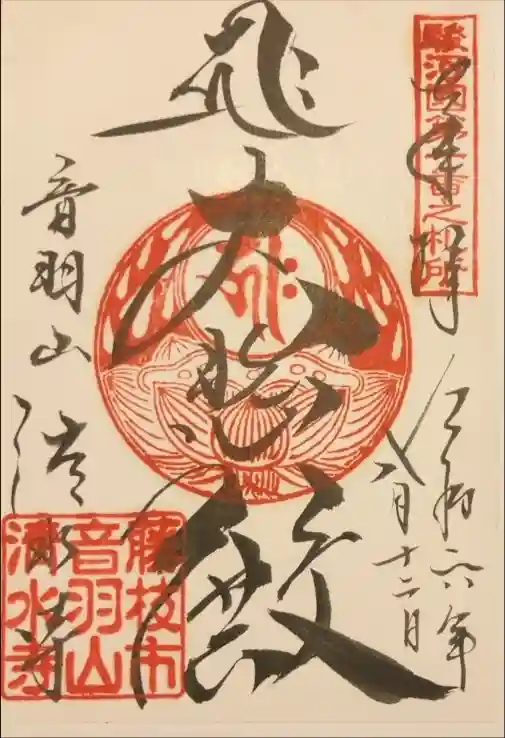 駿河國第一番之札所
奉拝
令和六年
八月十二日
大悲殿
音羽山
清水寺
藤枝市
音羽山
清水寺